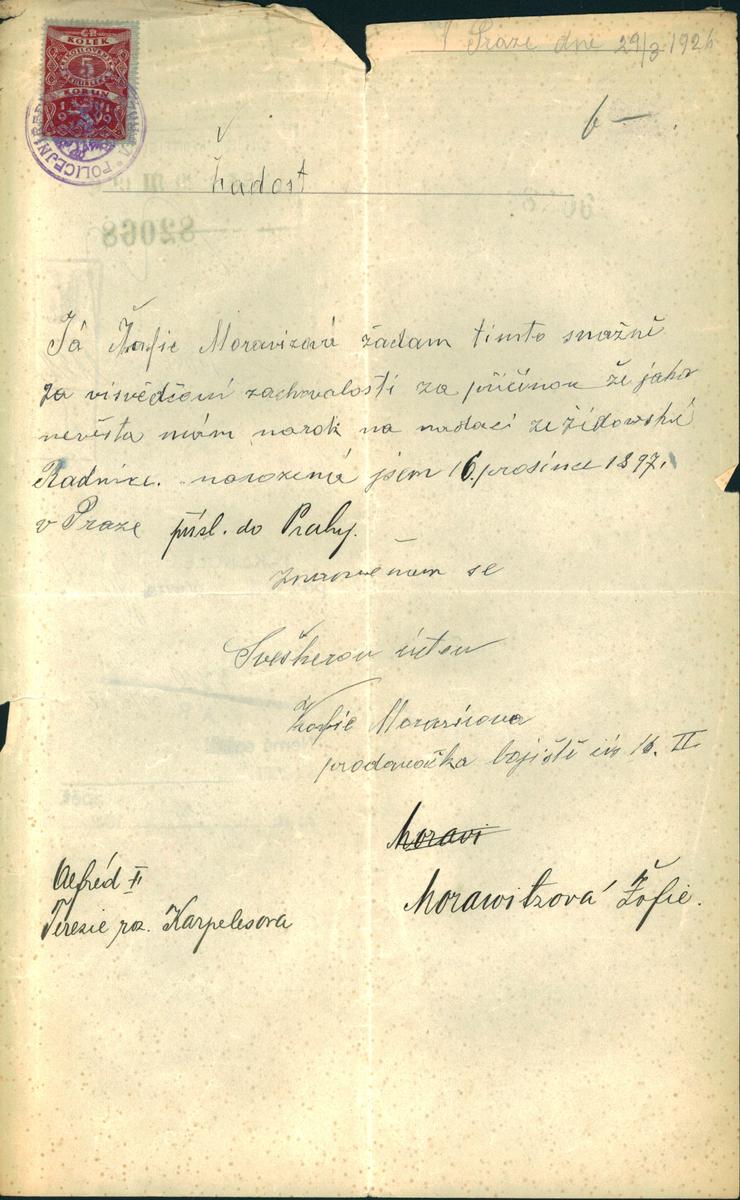 V Praze dne 29/3 1926
KOLEK
5
KORUN
POLICEJNÍ
6 —
Žádost
82068
Já Žofie Moravizová žádam timto snažně
za visvědčení zachovalosti za příčinou že jako
nevěsta mám narok na nadaci ze židowské
Radnice. narozená jsem 16. prosince 1897.
v Praze přísl. do Prahy.
znamenam se
Sveškerou úctou
Žofie Moravicova
prodavačka bojiště čís 16. II
Moravi
Alfréd
Terezie roz. Karpelesova
Morawitzová Žofie.